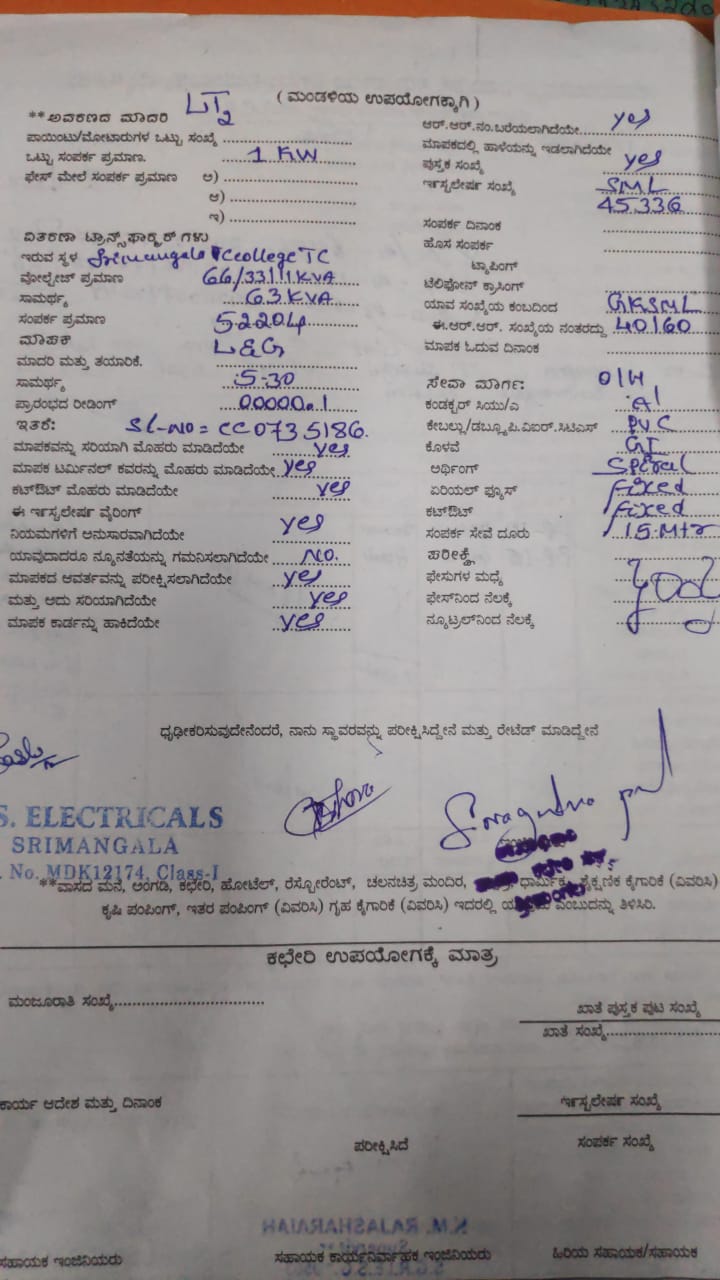 ( ಮಂಡಳಿಯ ಉಪಯೋಗಕ್ಕಾಗಿ )
**ಅವಕರಣದ ಮಾದರಿ LT2
ಪಾಯಿಂಟು/ಮೋಟಾರುಗಳ ಒಟ್ಟು ಸಂಖ್ಯೆ
ಒಟ್ಟು ಸಂಪರ್ಕ ಪ್ರಮಾಣ. 1 KW
ಫೇಸ್ ಮೇಲೆ ಸಂಪರ್ಕ ಪ್ರಮಾಣ ಅ)
ಆ)
ಇ)
ವಿತರಣಾ ಟ್ರಾನ್ಸ್‌ಫಾರ್ಮರ್ ಗಳು
ಇರುವ ಸ್ಥಳ Srimangala College TC
ವೋಲ್ಟೇಜ್ ಪ್ರಮಾಣ 66/33/11KVA
ಸಾಮರ್ಥ್ಯ 63 KVA
ಸಂಪರ್ಕ ಪ್ರಮಾಣ 52204
ಮಾಪಕ L&G
ಮಾದರಿ ಮತ್ತು ತಯಾರಿಕೆ.
ಸಾಮರ್ಥ್ಯ 5-30
ಪ್ರಾರಂಭದ ರೀಡಿಂಗ್ 00000.1
ಇತರೆ: Sl-No = CC0735186.
ಮಾಪಕವನ್ನು ಸರಿಯಾಗಿ ಮೊಹರು ಮಾಡಿದೆಯೇ yes
ಮಾಪಕ ಟರ್ಮಿನಲ್ ಕವರನ್ನು ಮೊಹರು ಮಾಡಿದೆಯೇ yes
ಕಟ್‌ಔಟ್ ಮೊಹರು ಮಾಡಿದೆಯೇ yes
ಈ ಇನ್‌ಸ್ಟಲೇಷನ್ ವೈರಿಂಗ್
ನಿಯಮಗಳಿಗೆ ಅನುಸಾರವಾಗಿದೆಯೇ yes
ಯಾವುದಾದರೂ ನ್ಯೂನತೆಯನ್ನು ಗಮನಿಸಲಾಗಿದೆಯೇ No.
ಮಾಪಕದ ಆವರ್ತವನ್ನು ಪರೀಕ್ಷಿಸಲಾಗಿದೆಯೇ yes
ಮತ್ತು ಅದು ಸರಿಯಾಗಿದೆಯೇ yes
ಮಾಪಕ ಕಾರ್ಡನ್ನು ಹಾಕಿದೆಯೇ yes
ಆರ್.ಆರ್.ನಂ.ಬರೆಯಲಾಗಿದೆಯೇ yes
ಮಾಪಕದಲ್ಲಿ ಹಾಳೆಯನ್ನು ಇಡಲಾಗಿದೆಯೇ yes
ಪುಸ್ತಕ ಸಂಖ್ಯೆ
ಇನ್‌ಸ್ಟಲೇಷನ್ ಸಂಖ್ಯೆ SML
45336
ಸಂಪರ್ಕ ದಿನಾಂಕ
ಹೊಸ ಸಂಪರ್ಕ
ಟ್ಯಾಪಿಂಗ್
ಟೆಲಿಫೋನ್ ಕ್ರಾಸಿಂಗ್
ಯಾವ ಸಂಖ್ಯೆಯ ಕಂಬದಿಂದ GKSML
ಈ.ಆರ್.ಆರ್. ಸಂಖ್ಯೆಯ ನಂತರದ್ದು 40160
ಮಾಪಕ ಓದುವ ದಿನಾಂಕ
ಸೇವಾ ಮಾರ್ಗ: O/H
ಕಂಡಕ್ಟರ್ ಸಿಯು/ಎ Al
ಕೇಬಲ್ಲು/ಡಬ್ಲ್ಯೂ.ಪಿ.ವಿಐರ್.ಸಿಟಿಎಸ್ PVC
ಕೊಳವೆ GI
ಅರ್ಥಿಂಗ್ Spiral
ಏರಿಯಲ್ ಫ್ಯೂಸ್ fixed
ಕಟ್‌ಔಟ್ fixed
ಸಂಪರ್ಕ ಸೇವೆ ದೂರು 15 Mtr
ಪರೀಕ್ಷೆ
ಫೇಸುಗಳ ಮಧ್ಯೆ
ಫೇಸ್‌ನಿಂದ ನೆಲಕ್ಕೆ
ನ್ಯೂಟ್ರಲ್‌ನಿಂದ ನೆಲಕ್ಕೆ
ಧೃಢೀಕರಿಸುವುದೇನೆಂದರೆ, ನಾನು ಸ್ಥಾವರವನ್ನು ಪರೀಕ್ಷಿಸಿದ್ದೇನೆ ಮತ್ತು ರೇಟೆಡ್ ಮಾಡಿದ್ದೇನೆ
S. ELECTRICALS
SRIMANGALA
. No. MDK12174, Class-I
**ವಾಸದ ಮನೆ, ಅಂಗಡಿ, ಕಛೇರಿ, ಹೋಟೆಲ್, ರೆಸ್ಟೋರೆಂಟ್, ಚಲನಚಿತ್ರ ಮಂದಿರ, ಧಾರ್ಮಿಕ, ಶೈಕ್ಷಣಿಕ ಕೈಗಾರಿಕೆ (ವಿವರಿಸಿ)
ಕೃಷಿ ಪಂಪಿಂಗ್, ಇತರ ಪಂಪಿಂಗ್ (ವಿವರಿಸಿ) ಗೃಹ ಕೈಗಾರಿಕೆ (ವಿವರಿಸಿ) ಇದರಲ್ಲಿ ಎಂಬುದನ್ನು ತಿಳಿಸಿರಿ.
ಕಛೇರಿ ಉಪಯೋಗಕ್ಕೆ ಮಾತ್ರ
ಮಂಜೂರಾತಿ ಸಂಖ್ಯೆ
ಖಾತೆ ಪುಸ್ತಕ ಪುಟ ಸಂಖ್ಯೆ
ಖಾತೆ ಸಂಖ್ಯೆ
ಕಾರ್ಯ ಆದೇಶ ಮತ್ತು ದಿನಾಂಕ
ಇನ್‌ಸ್ಟಲೇಷನ್ ಸಂಖ್ಯೆ
ಪರೀಕ್ಷಿಸಿದೆ
ಸಂಪರ್ಕ ಸಂಖ್ಯೆ
ಸಹಾಯಕ ಇಂಜಿನಿಯರು
ಸಹಾಯಕ ಕಾರ್ಯನಿರ್ವಾಹಕ ಇಂಜಿನಿಯರು
ಹಿರಿಯ ಸಹಾಯಕ/ಸಹಾಯಕ